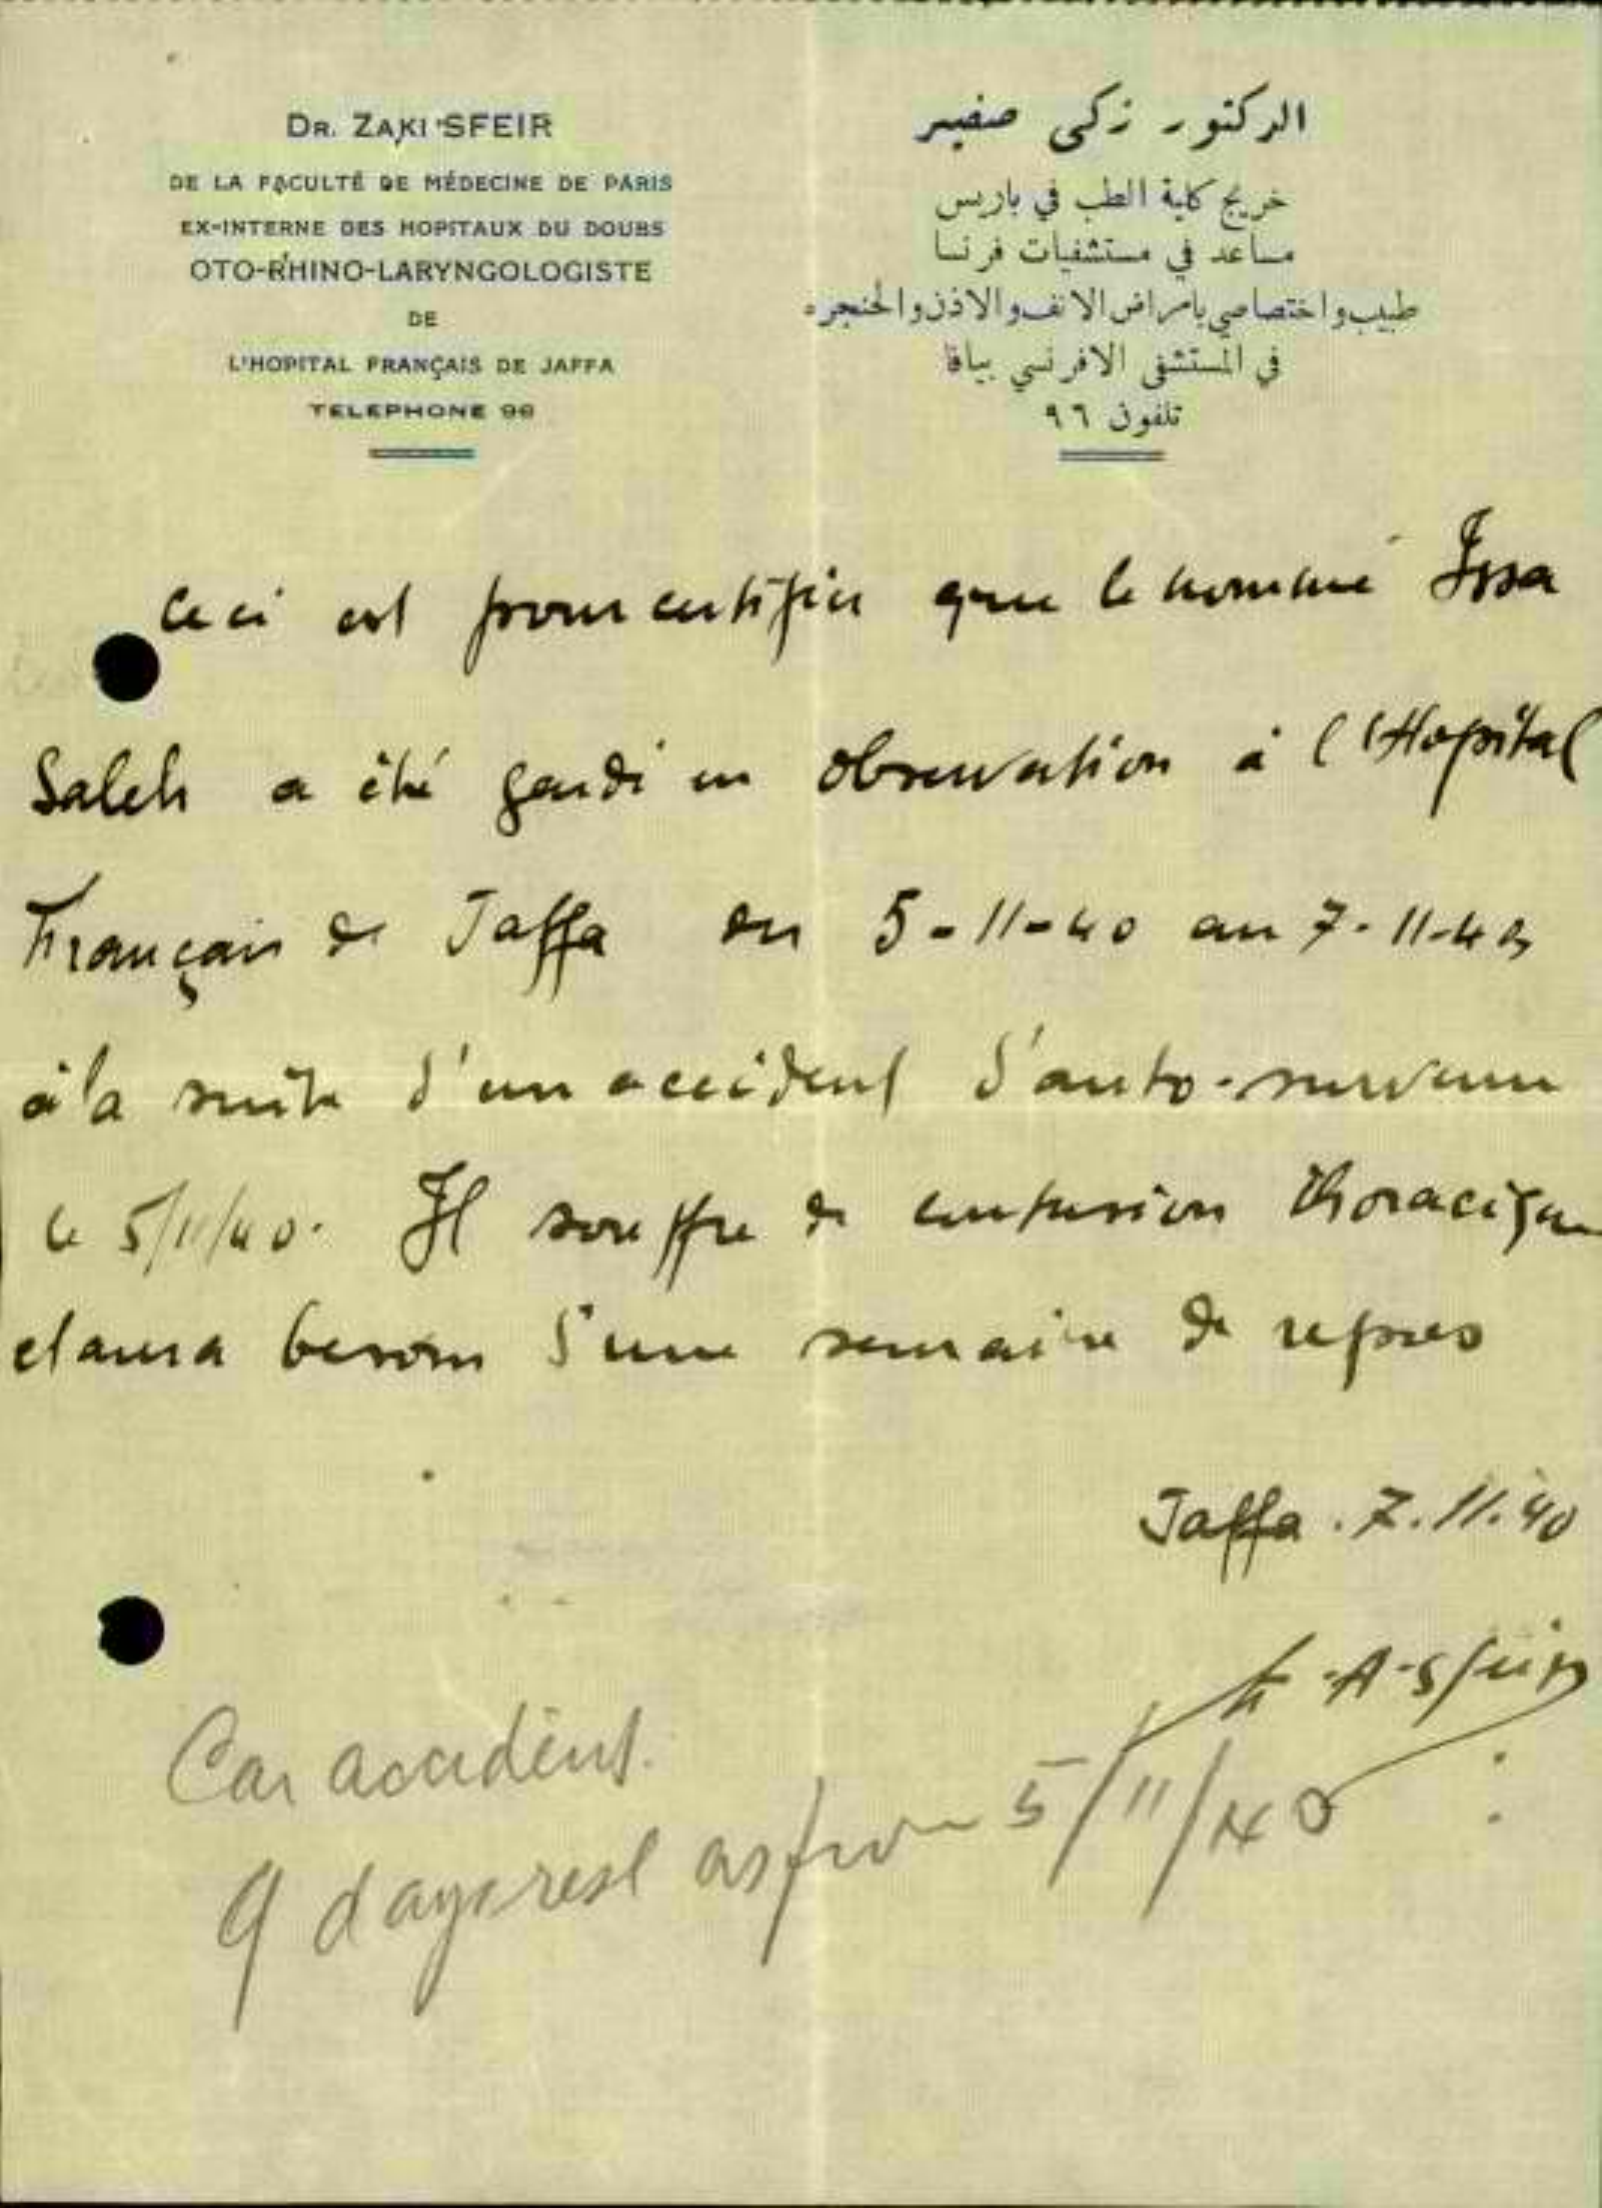 DR. ZAKI SFEIR
DE LA FACULTÉ DE MÉDECINE DE PARIS
EX-INTERNE DES HOPITAUX DU DOUBS
OTO-RHINO-LARYNGOLOGISTE
DE
L'HOPITAL FRANÇAIS DE JAFFA
TELEPHONE 96
الدكتور زكي صفير
خريج كلية الطب في باريس
مساعد في مستشفيات فرنسا
طبيب واختصاصي بامراض الانف والاذن والحنجره
في المستشفى الافرنسي بيافا
تلفون ٩٦
Ceci est pour certifier que le nommé Issa
Saleh a été gardé en observation à l'Hopital
Français de Jaffa du 5-11-40 au 7-11-40
à la suite d'un accident d'auto survenu
le 5/11/40. Il souffre de contusion thoracique
et aura besoin d'une semaine de repos
Jaffa. 7.11.40
A-Sfeir
Car accident.
9 days rest as from 5/11/40